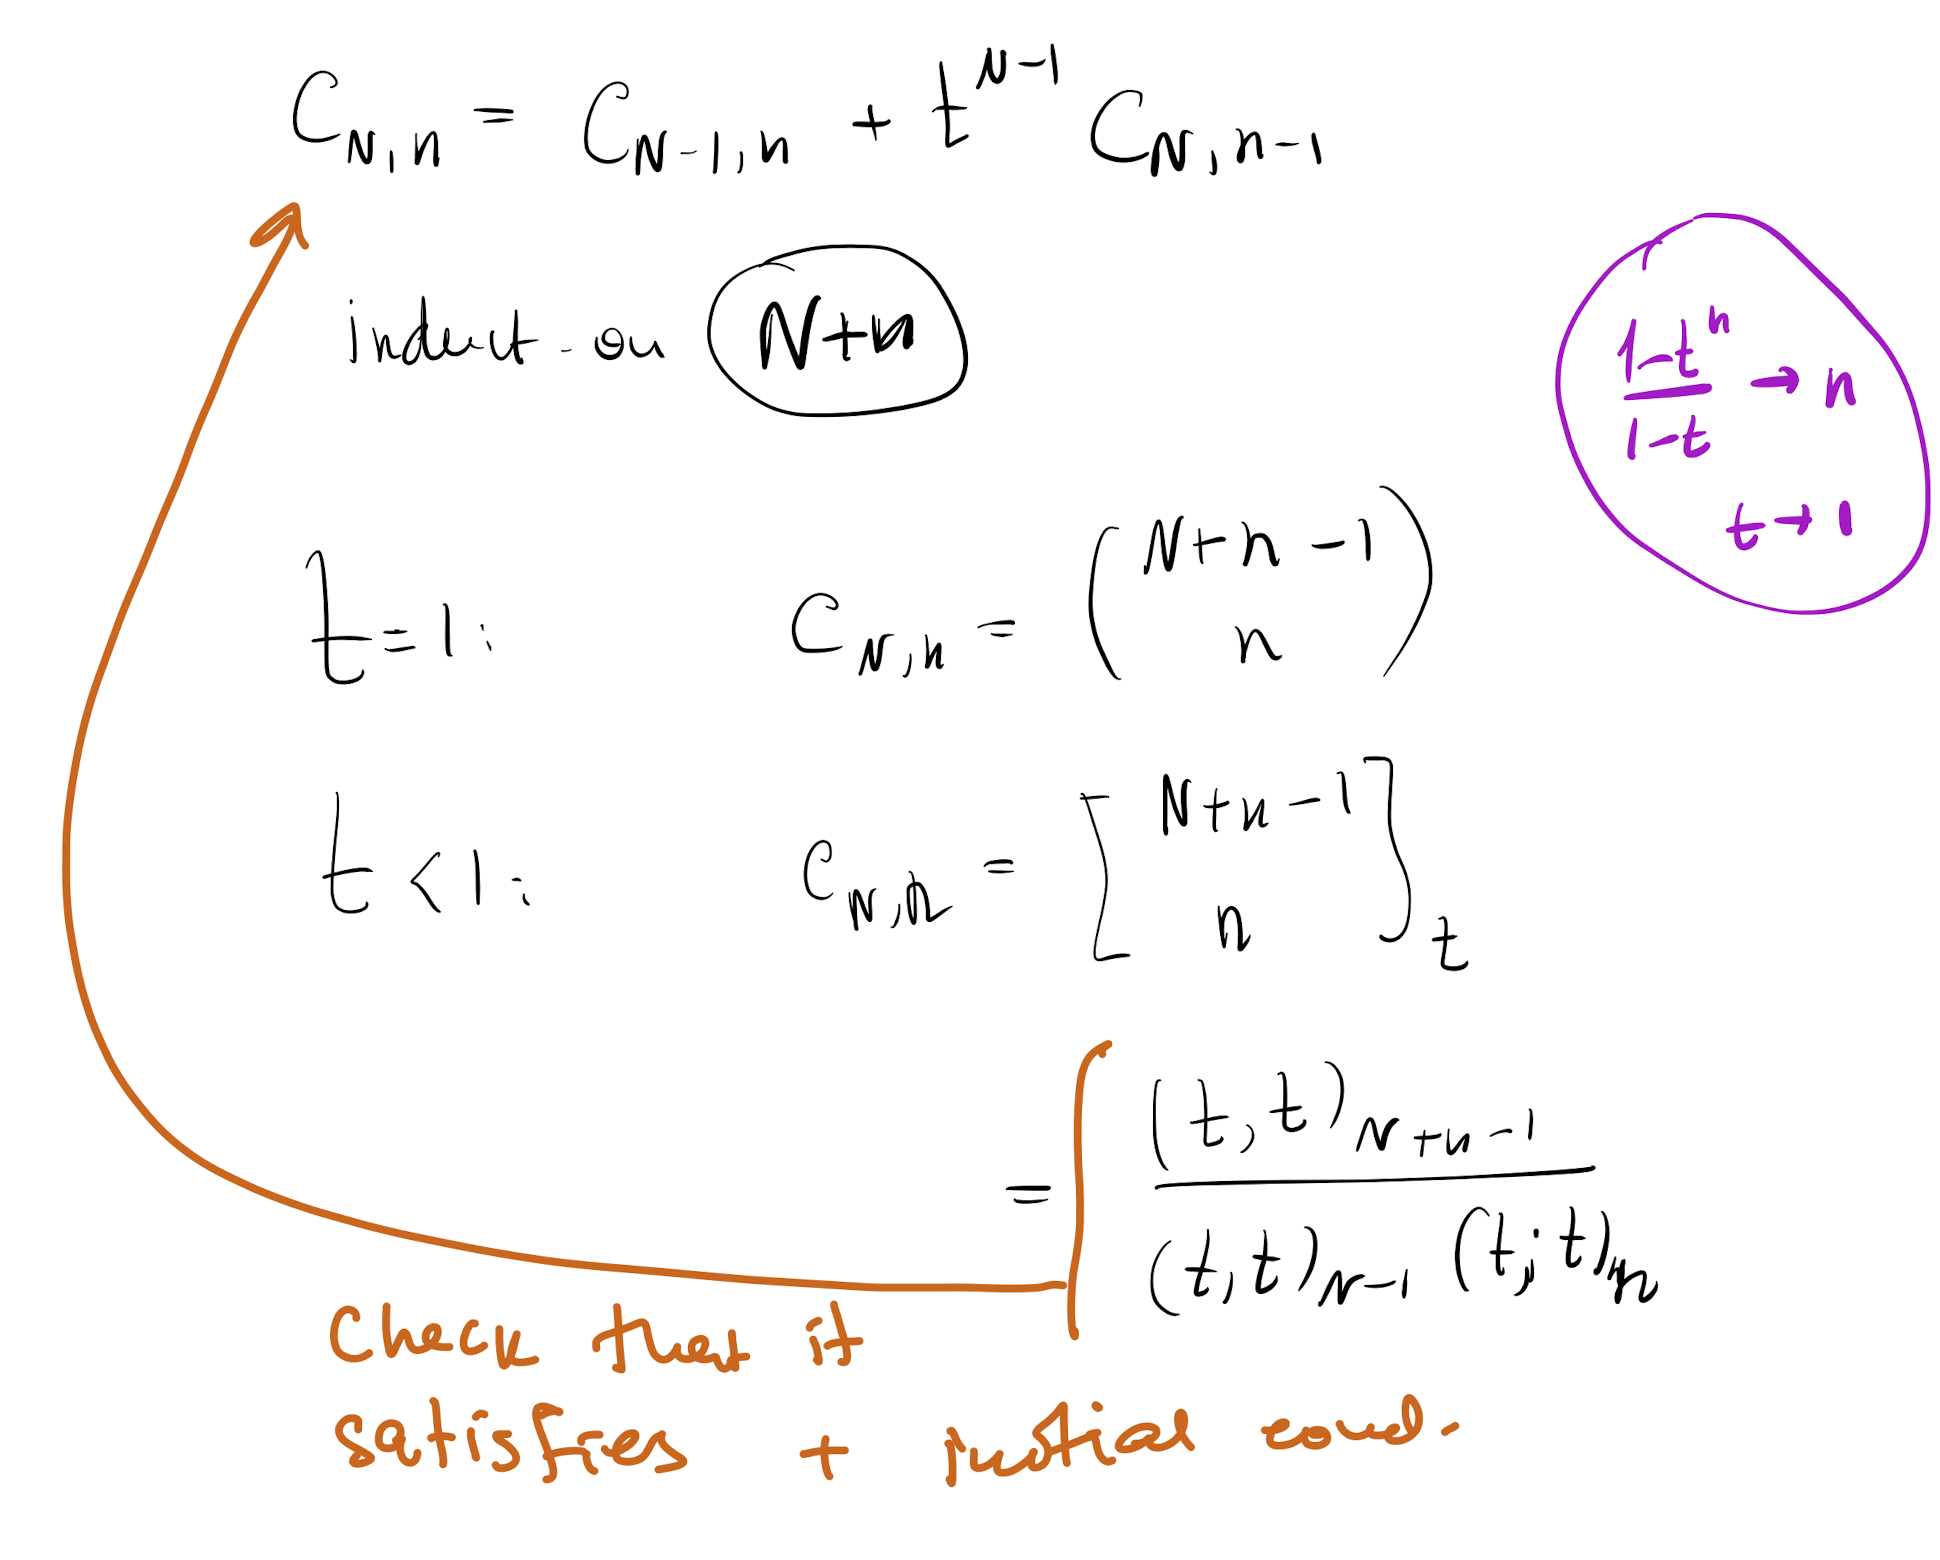 C_{N,n} = C_{N-1,n} + t^{N-1} C_{N,n-1}
induct. on N+n
\frac{1-t^n}{1-t} → n
t → 1
t=1: C_{N,n} = \binom{N+n-1}{n}
t<1: C_{N,n} = \begin{bmatrix} N+n-1 \\ n \end{bmatrix}_t
= \frac{(t,t)_{N+n-1}}{(t,t)_{N-1} (t;t)_n}
Check that it
satisfies + initial cond.